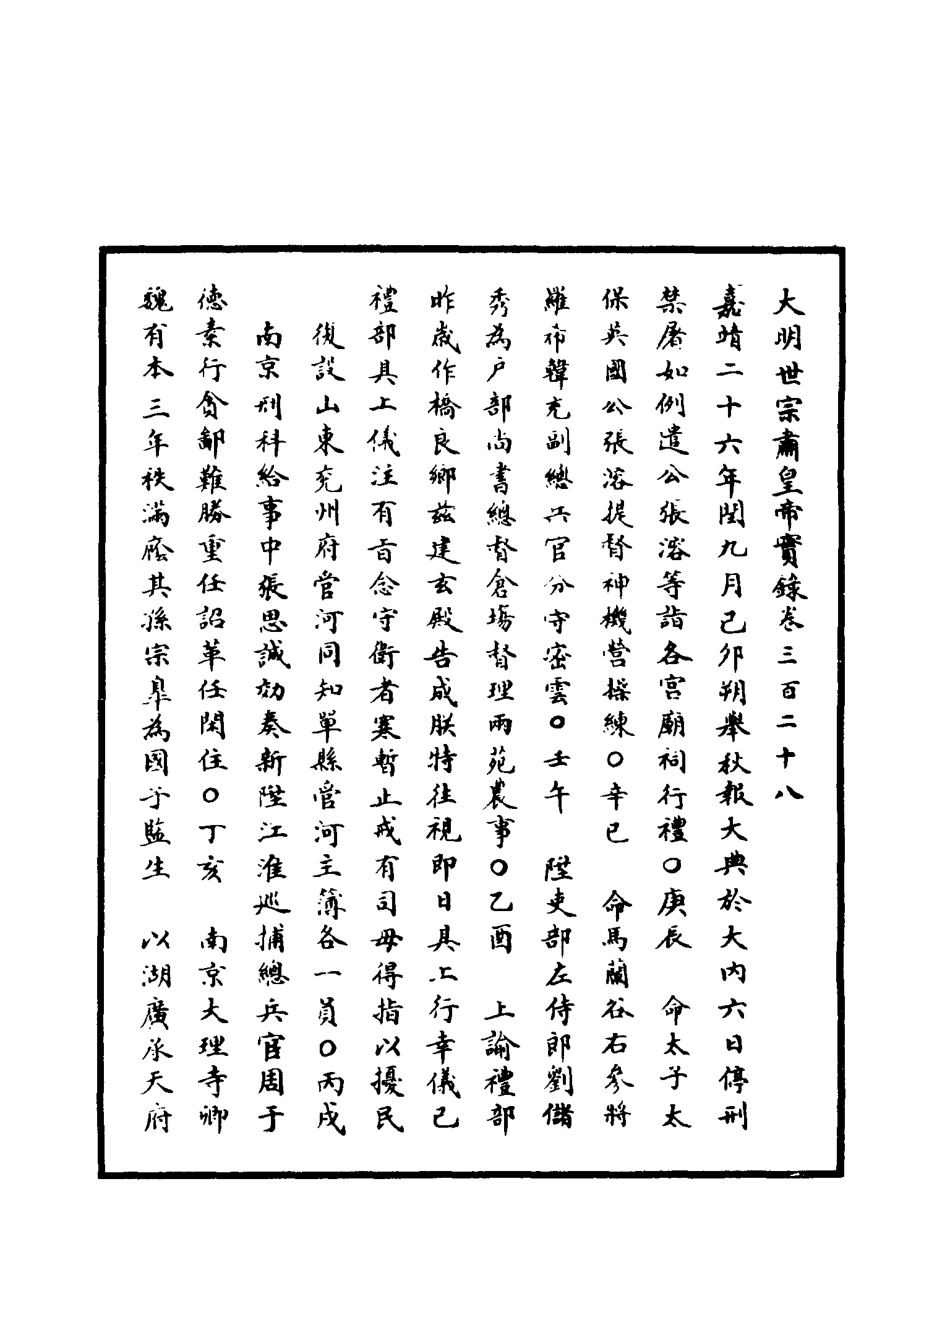 大明世宗肅皇帝實錄卷三百二十八
嘉靖二十六年閏九月己卯朔舉秋報大典於大內六日停刑
禁屠如例遣公張溶等詣各宮廟祠行禮○庚辰　命太子太
保英國公張溶提督神機營操練○辛巳　命馬蘭谷右參將
羅希韓充副總兵官分守密雲○壬午　陞吏部左侍郎劉儲
秀為户部尚書總督倉場督理兩苑農事○乙酉　上諭禮部
昨歲作橋良鄉茲建玄殿告成朕特往視即日具上行幸儀已
禮部具上儀注有旨念守衛者寒暫止戒有司毋得指以擾民
復設山東兗州府管河同知單縣管河主簿各一員○丙戌
南京刑科給事中張思誠劾奏新陞江淮巡捕總兵官周于
德素行貪鄙難勝重任詔革任閑住○丁亥　南京大理寺卿
魏有本三年秩滿廕其孫宗皐為國子監生　以湖廣承天府